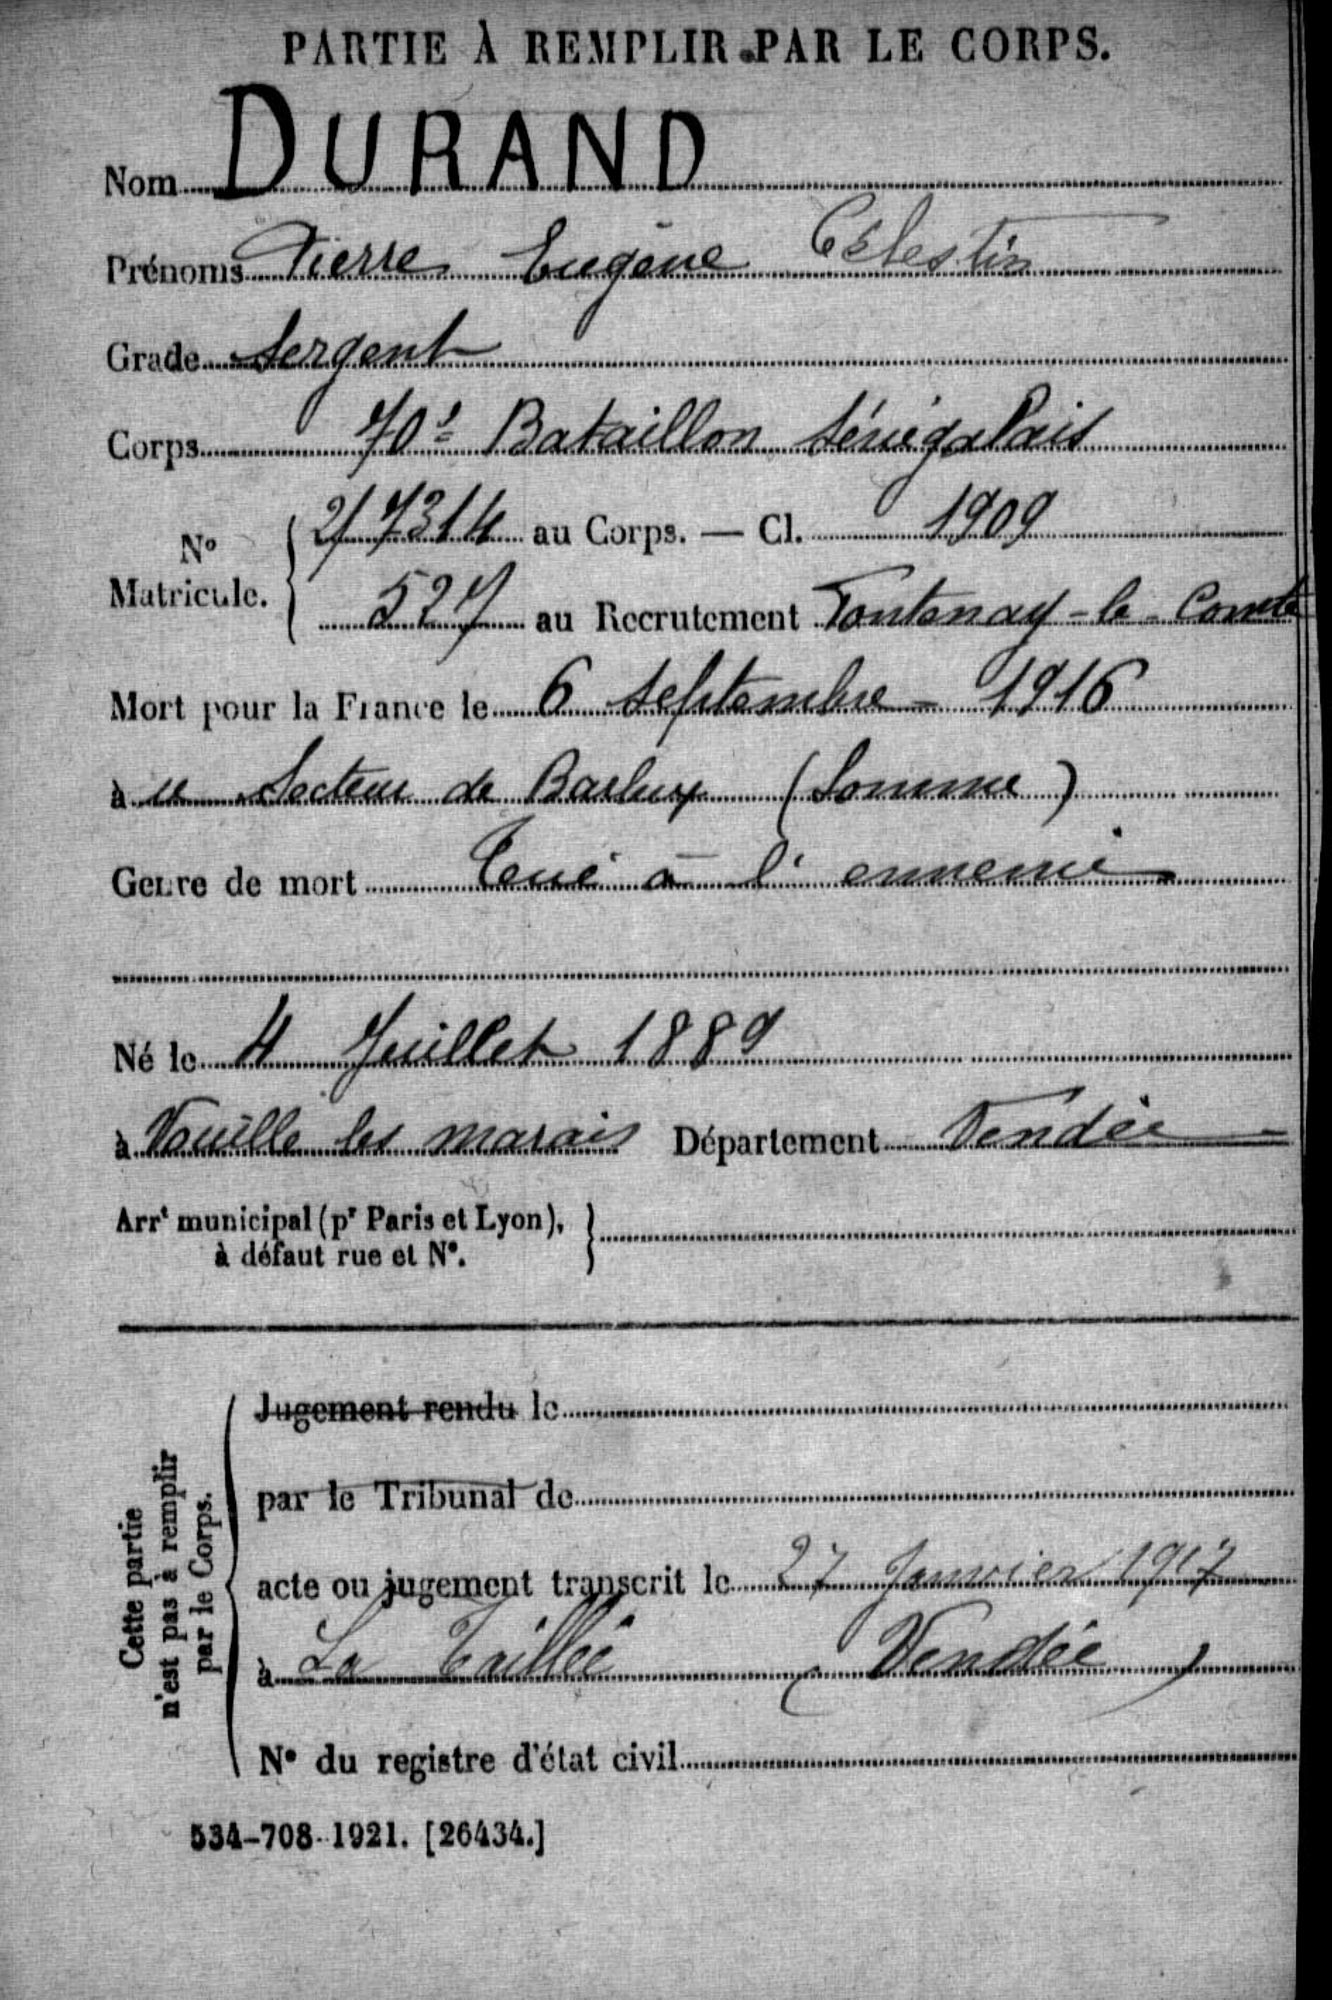 PARTIE À REMPLIR PAR LE CORPS.
Nom DURAND
Prénoms Pierre Eugène Célestin
Grade Sergent
Corps 70e Bataillon Sénégalais
No Matricule. { 2/7314 au Corps. — Cl. 1909
527 au Recrutement Fontenay-le-Comte
Mort pour la France le 6 Septembre - 1916
à Secteur de Barleux (Somme)
Genre de mort Tué à l'ennemi
Né le 4 Juillet 1889
à Vouillé les marais Département Vendée
Arrt municipal (pr Paris et Lyon),
à défaut rue et No.
Cette partie
n'est pas à remplir
par le Corps.
Jugement rendu le
par le Tribunal de
acte ou jugement transcrit le 27 Janvier 1917
à La Taillée (Vendée)
No du registre d'état civil
534-708-1921. [26434.]